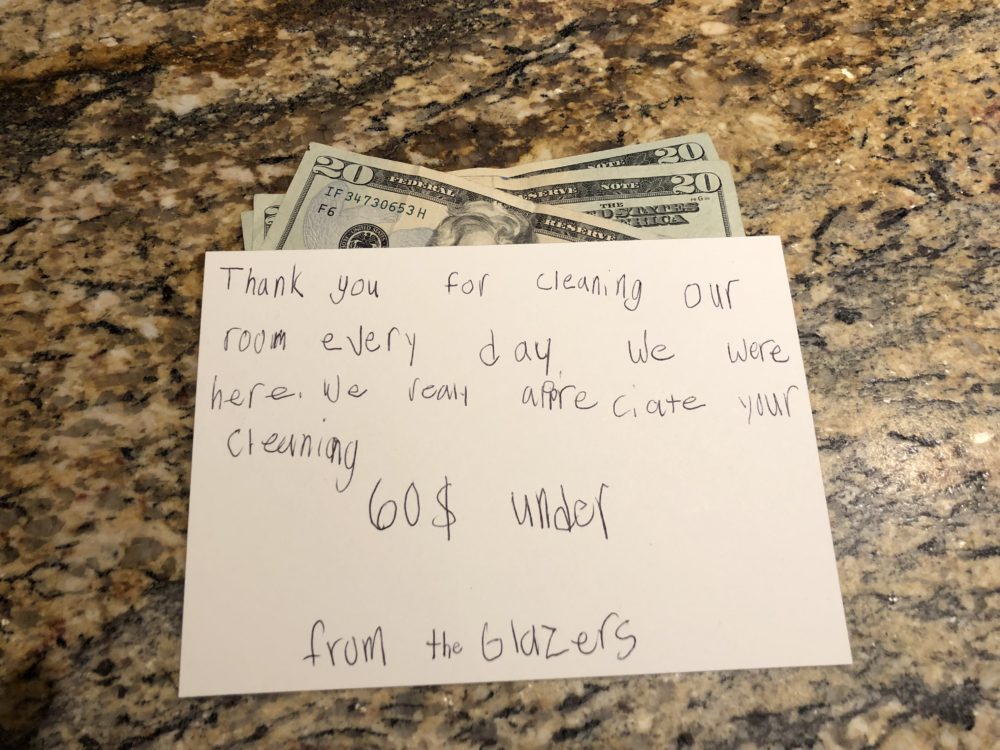 20 FEDERAL RESERVE
IF 34730653 H
F6
NOTE 20
ERVE NOTE 20
THE
UNITED STATES
Thank you for cleaning our
room every day we were
here. We realy appreciate your
cleaning
60$ under
from the Glazers